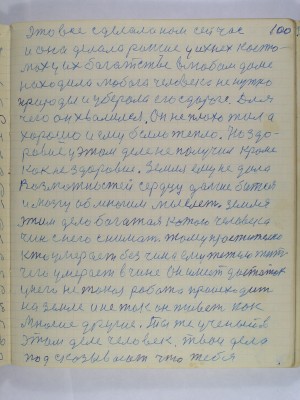 Это все сделала ном сейчас 100
и она делала раньше у их костю
мах у их богатстве в новом доме
находила любого человека ненужно
природы и убирала его с дороге. Для
чего он хвалился. Он не плохо жил а
хорошо и ему было тепло. Но здо
ровие у этом деле не получил кроме
как не здоровие. Земля ему не дала
возможностей сердцу дальше биться
и мозгу об многим мыслеть. Земля
этим дело богатая кого человека
чин с него снимать. Тому простительно
кто умирает без чина ему тяжело жить
чего умерает в чине Он имел достаток
у него не такая робота происходит
на земле и не так он живет как
многие другие. Ты же ученый в
этом деле человек. твои дела
подсказывают что тебя